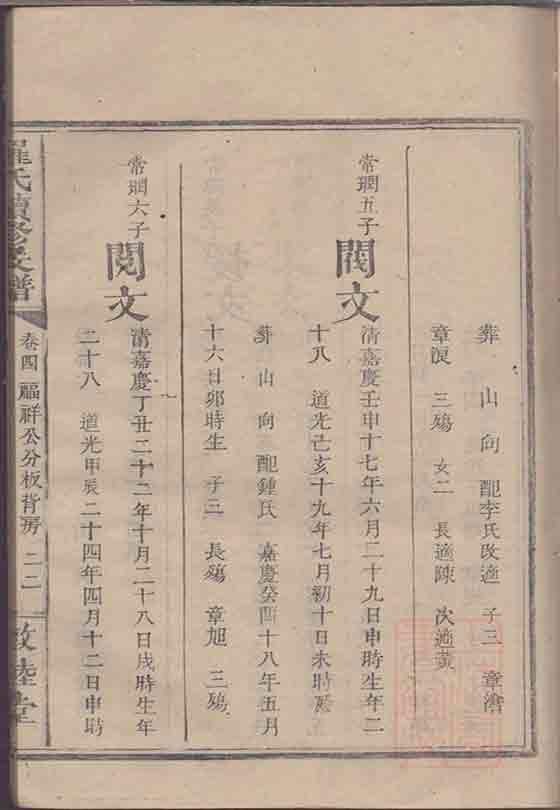 葬 山 向 配李氏改適 子三 章
章 三殤 女二 長適陳 次適黃
常瑥五子
閣文
清嘉慶壬申十七年六月二十九日申時生年二
十八 道光己亥十九年七月初十日未時
葬 山 向 配鍾氏 嘉慶癸酉十八年五月
十六日卯時生 子三 長殤 章旭 三殤
常瑥六子
閱文
清嘉慶丁丑二十二年十月二十八日戌時生年
二十八 道光甲辰二十四年四月十二日申時
羅氏續修支譜
卷四 福祥公分板背房 二二
敦睦堂